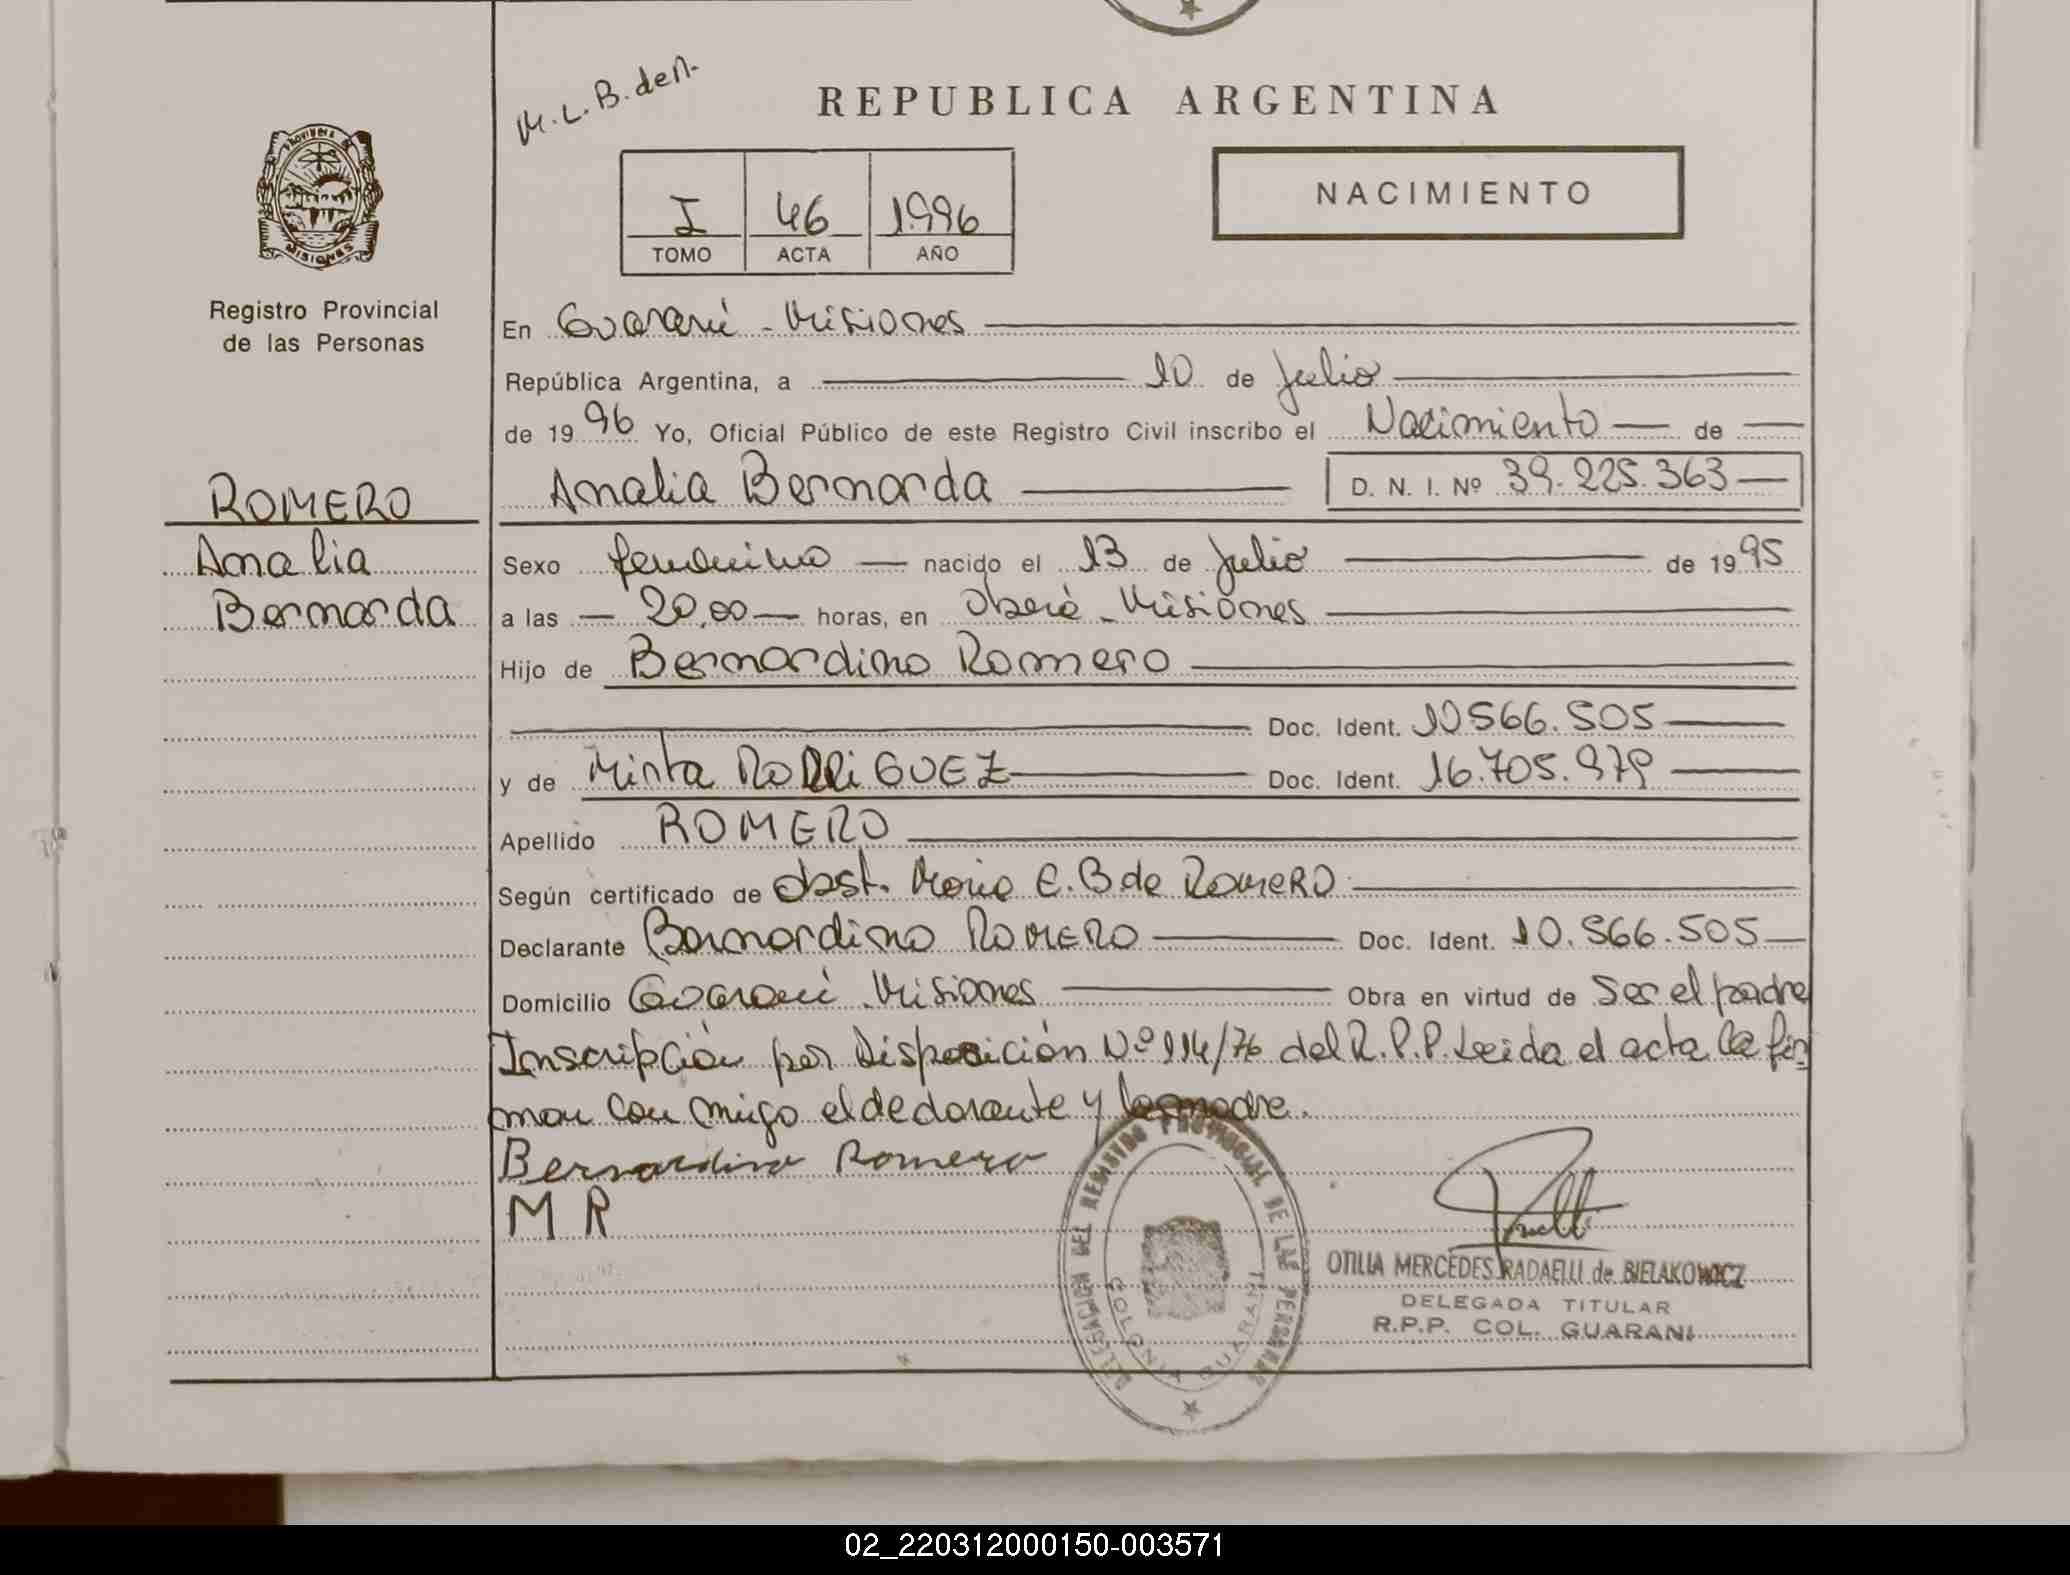 M. L. B. de A.
REPUBLICA ARGENTINA
PROVINCIA DE
MISIONES
NACIMIENTO
I 46 1996
TOMO ACTA AÑO
Registro Provincial
de las Personas
ROMERO
Amalia
Bernarda
En Guaraní - Misiones
República Argentina, a 10 de Julio
de 1996 Yo, Oficial Público de este Registro Civil inscribo el Nacimiento de
Amalia Bernarda D. N. I. Nº 39.225.363
Sexo femenino nacido el 13 de Julio de 1995
a las 20,00 horas, en Oberá - Misiones
Hijo de Bernardino Romero
Doc. Ident. 10566.505
y de Mirta RODRIGUEZ Doc. Ident. 16.705.979
Apellido ROMERO
Según certificado de obst. María E. B de ROMERO
Declarante Bernardino ROMERO Doc. Ident. 10.566.505
Domicilio Guaraní - Misiones Obra en virtud de Ser el padre
Inscripción por Disposición Nº 114/76 del R.P.P. Leida el acta la fir
man con migo el declarante y la madre.
Bernardino Romero
M R
DELEGACION DEL REGISTRO PROVINCIAL DE LAS PERSONAS
COLONIA GUARANI
OTILIA MERCEDES RADAELLI de BIELAKOWICZ
DELEGADA TITULAR
R.P.P. COL. GUARANI
02_220312000150-003571